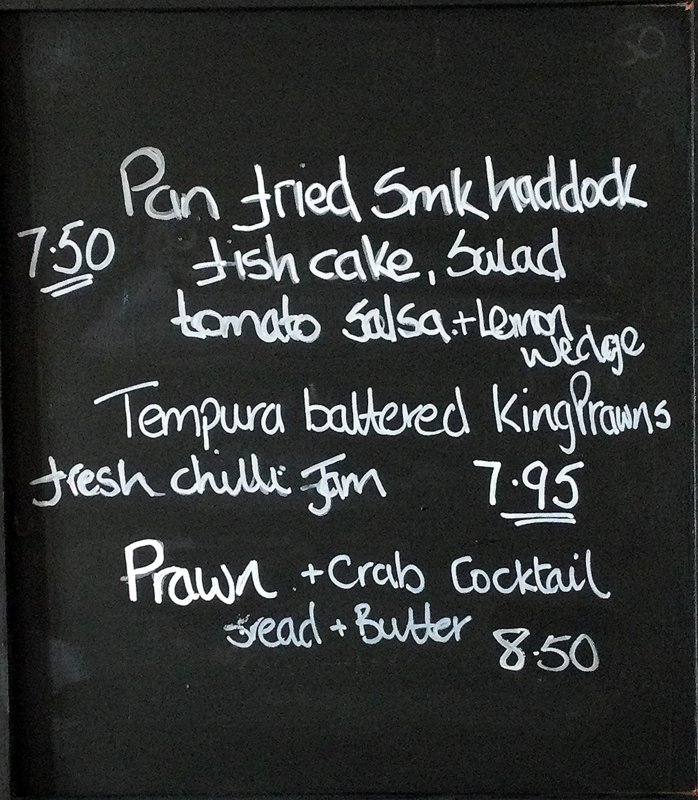 Pan fried Smk haddock
7.50 fish cake, Salad
tomato Salsa + Lemon
wedge
Tempura battered King Prawns
fresh chilli Jam 7.95
Prawn + Crab Cocktail
Bread + Butter 8.50